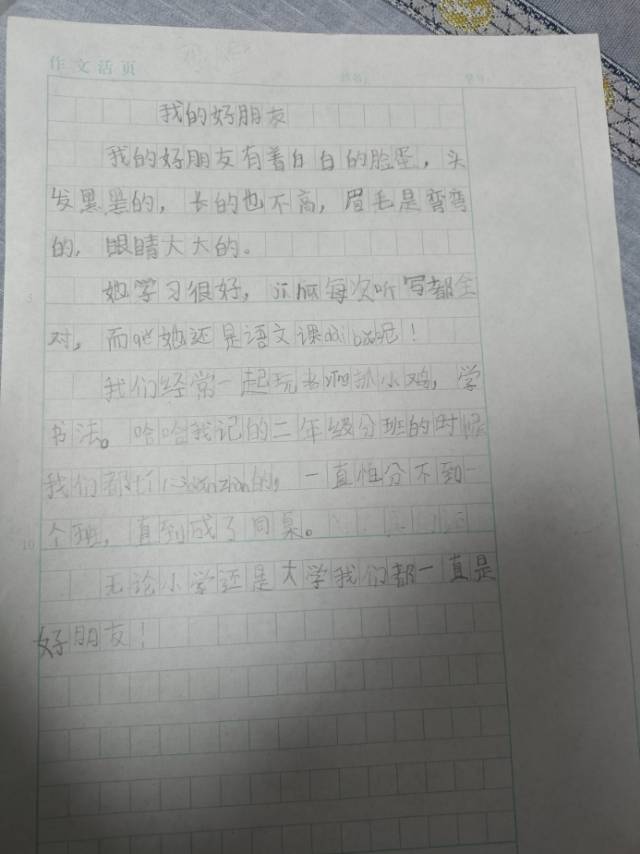 作文活页
我的好朋友
我的好朋友有着白白的脸蛋，头
发黑黑的，长的也不高，眉毛是弯弯
的，眼睛大大的。
她学习很好，每次听写都全
对，而qie她还是语文课dai biao呢！
我们经常一起玩抓小鸡，学
书法。哈哈我记的二年级分班的时候
我们都的，一直怕分不到一
个班，直到成了同桌。
10
无论小学还是大学我们都一直是
好朋友！